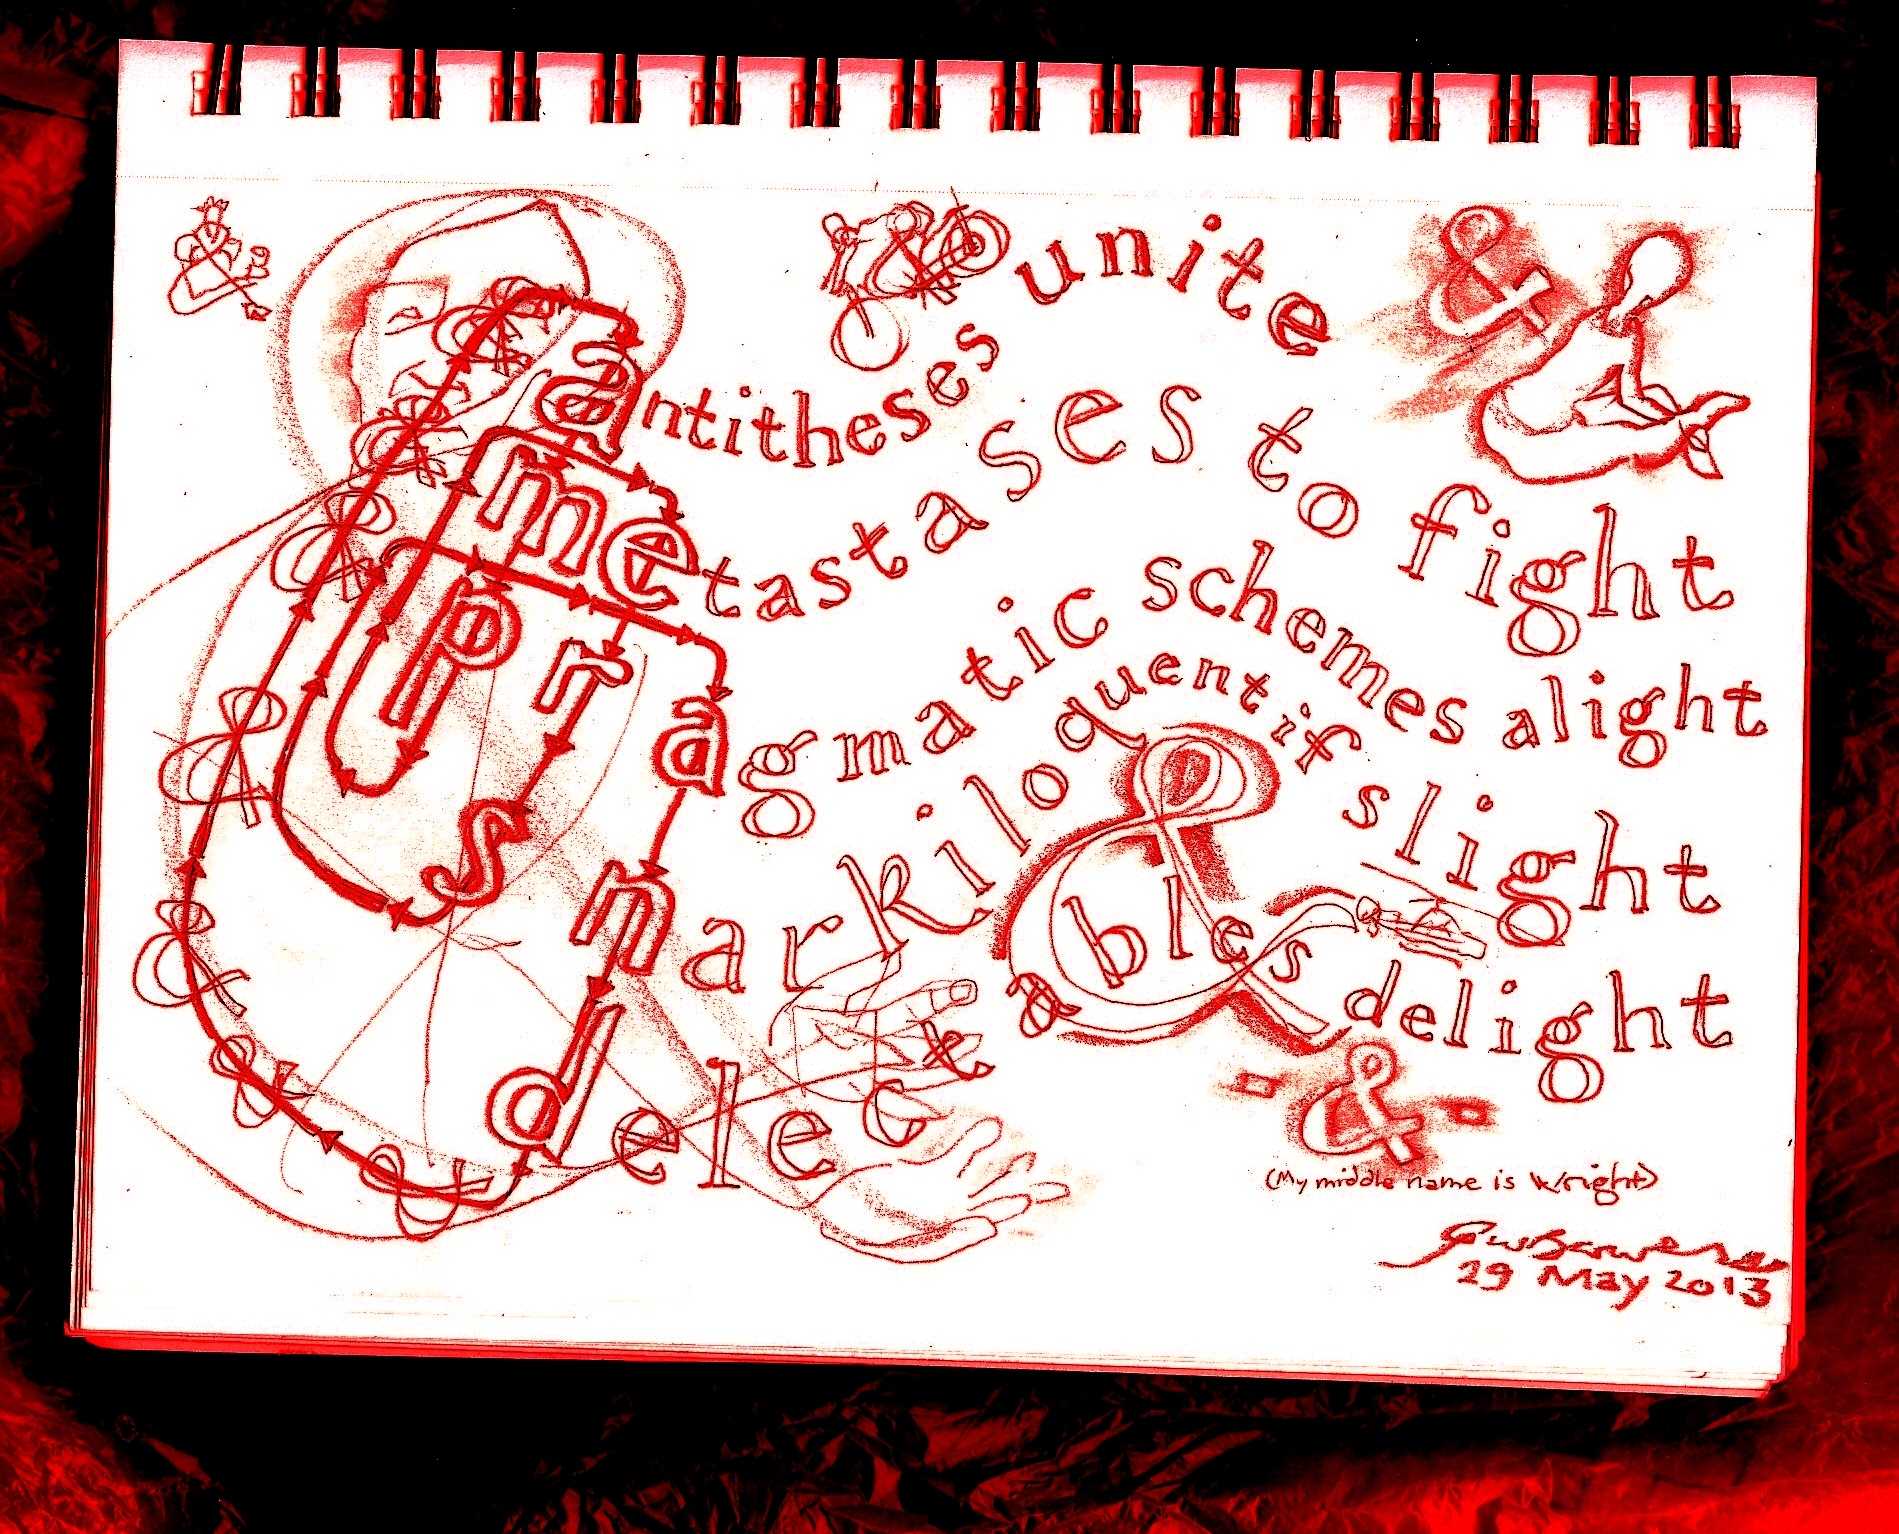 antitheses unite &
metastases to fight
pragmatic schemes alight
smarkiloquent if slight
delectables delight
&
(My middle name is Wright)
29 May 2013